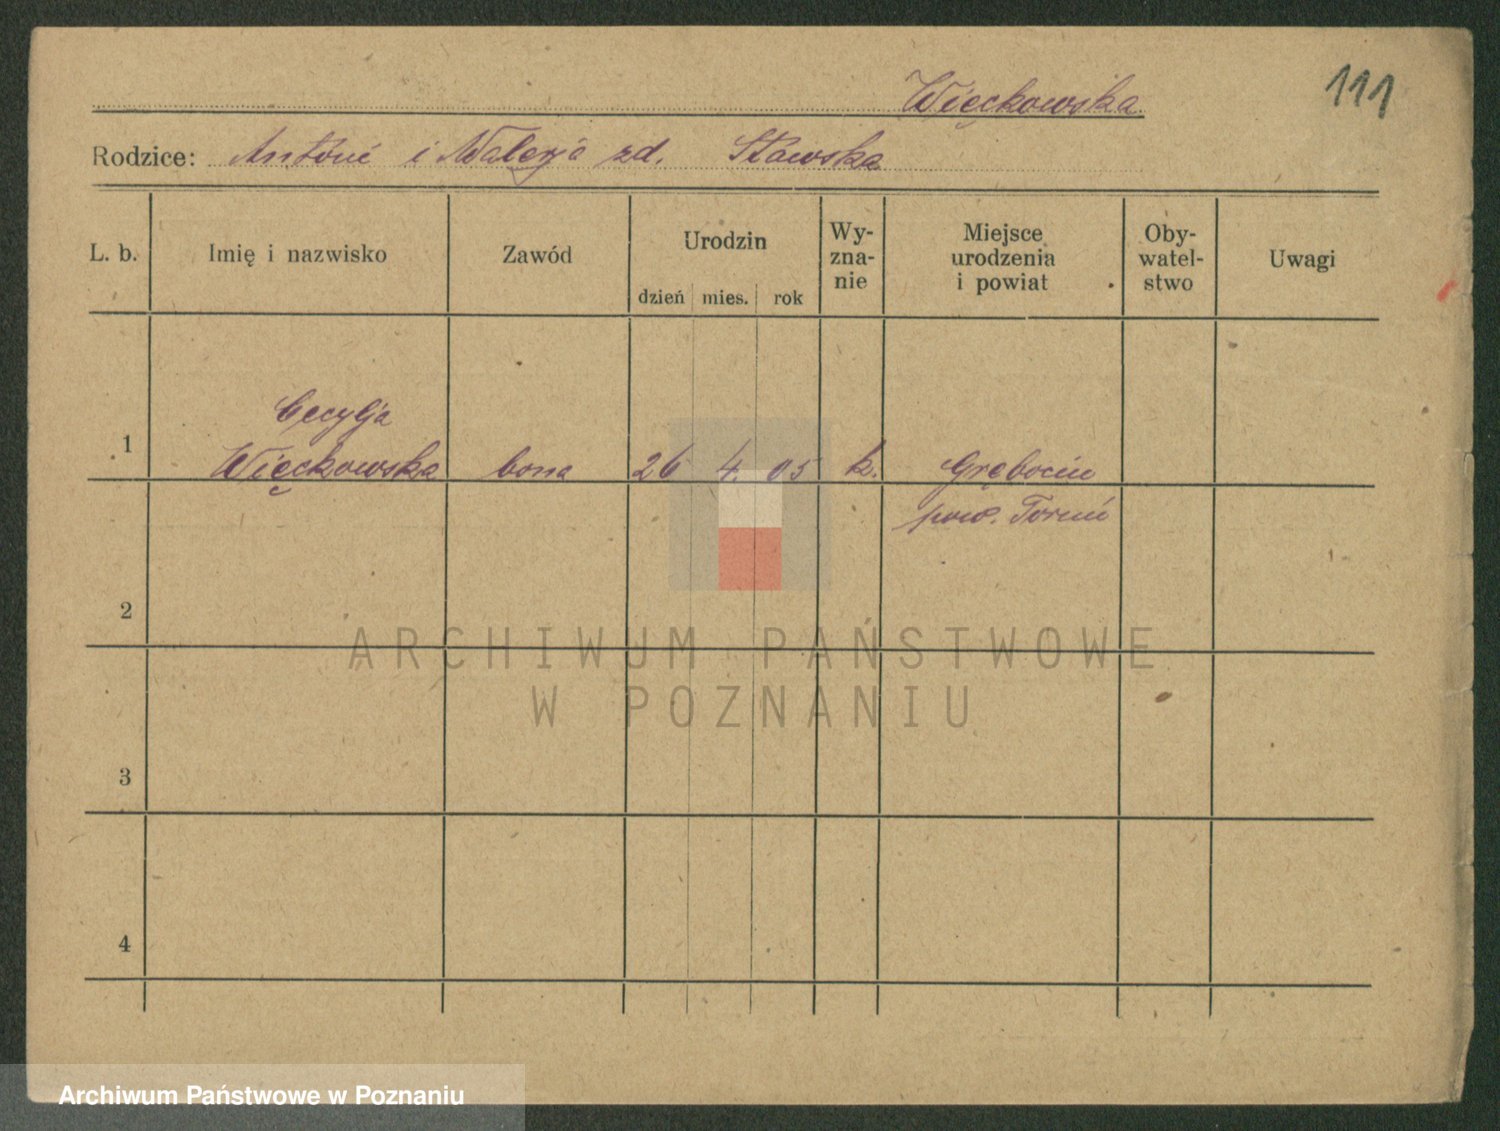 111
Więckowska
Rodzice: Antoni i Walerja zd. Stawska
L. b. Imię i nazwisko Zawód Urodzin dzień mies. rok Wy-zna-nie Miejsce urodzenia i powiat Oby-watel-stwo Uwagi
Cecylja
1 Więckowska bona 26 4. 05 k. Grębocin
pow. Toruń
2
ARCHIWUM PAŃSTWOWE
W POZNANIU
3
4
Archiwum Państwowe w Poznaniu